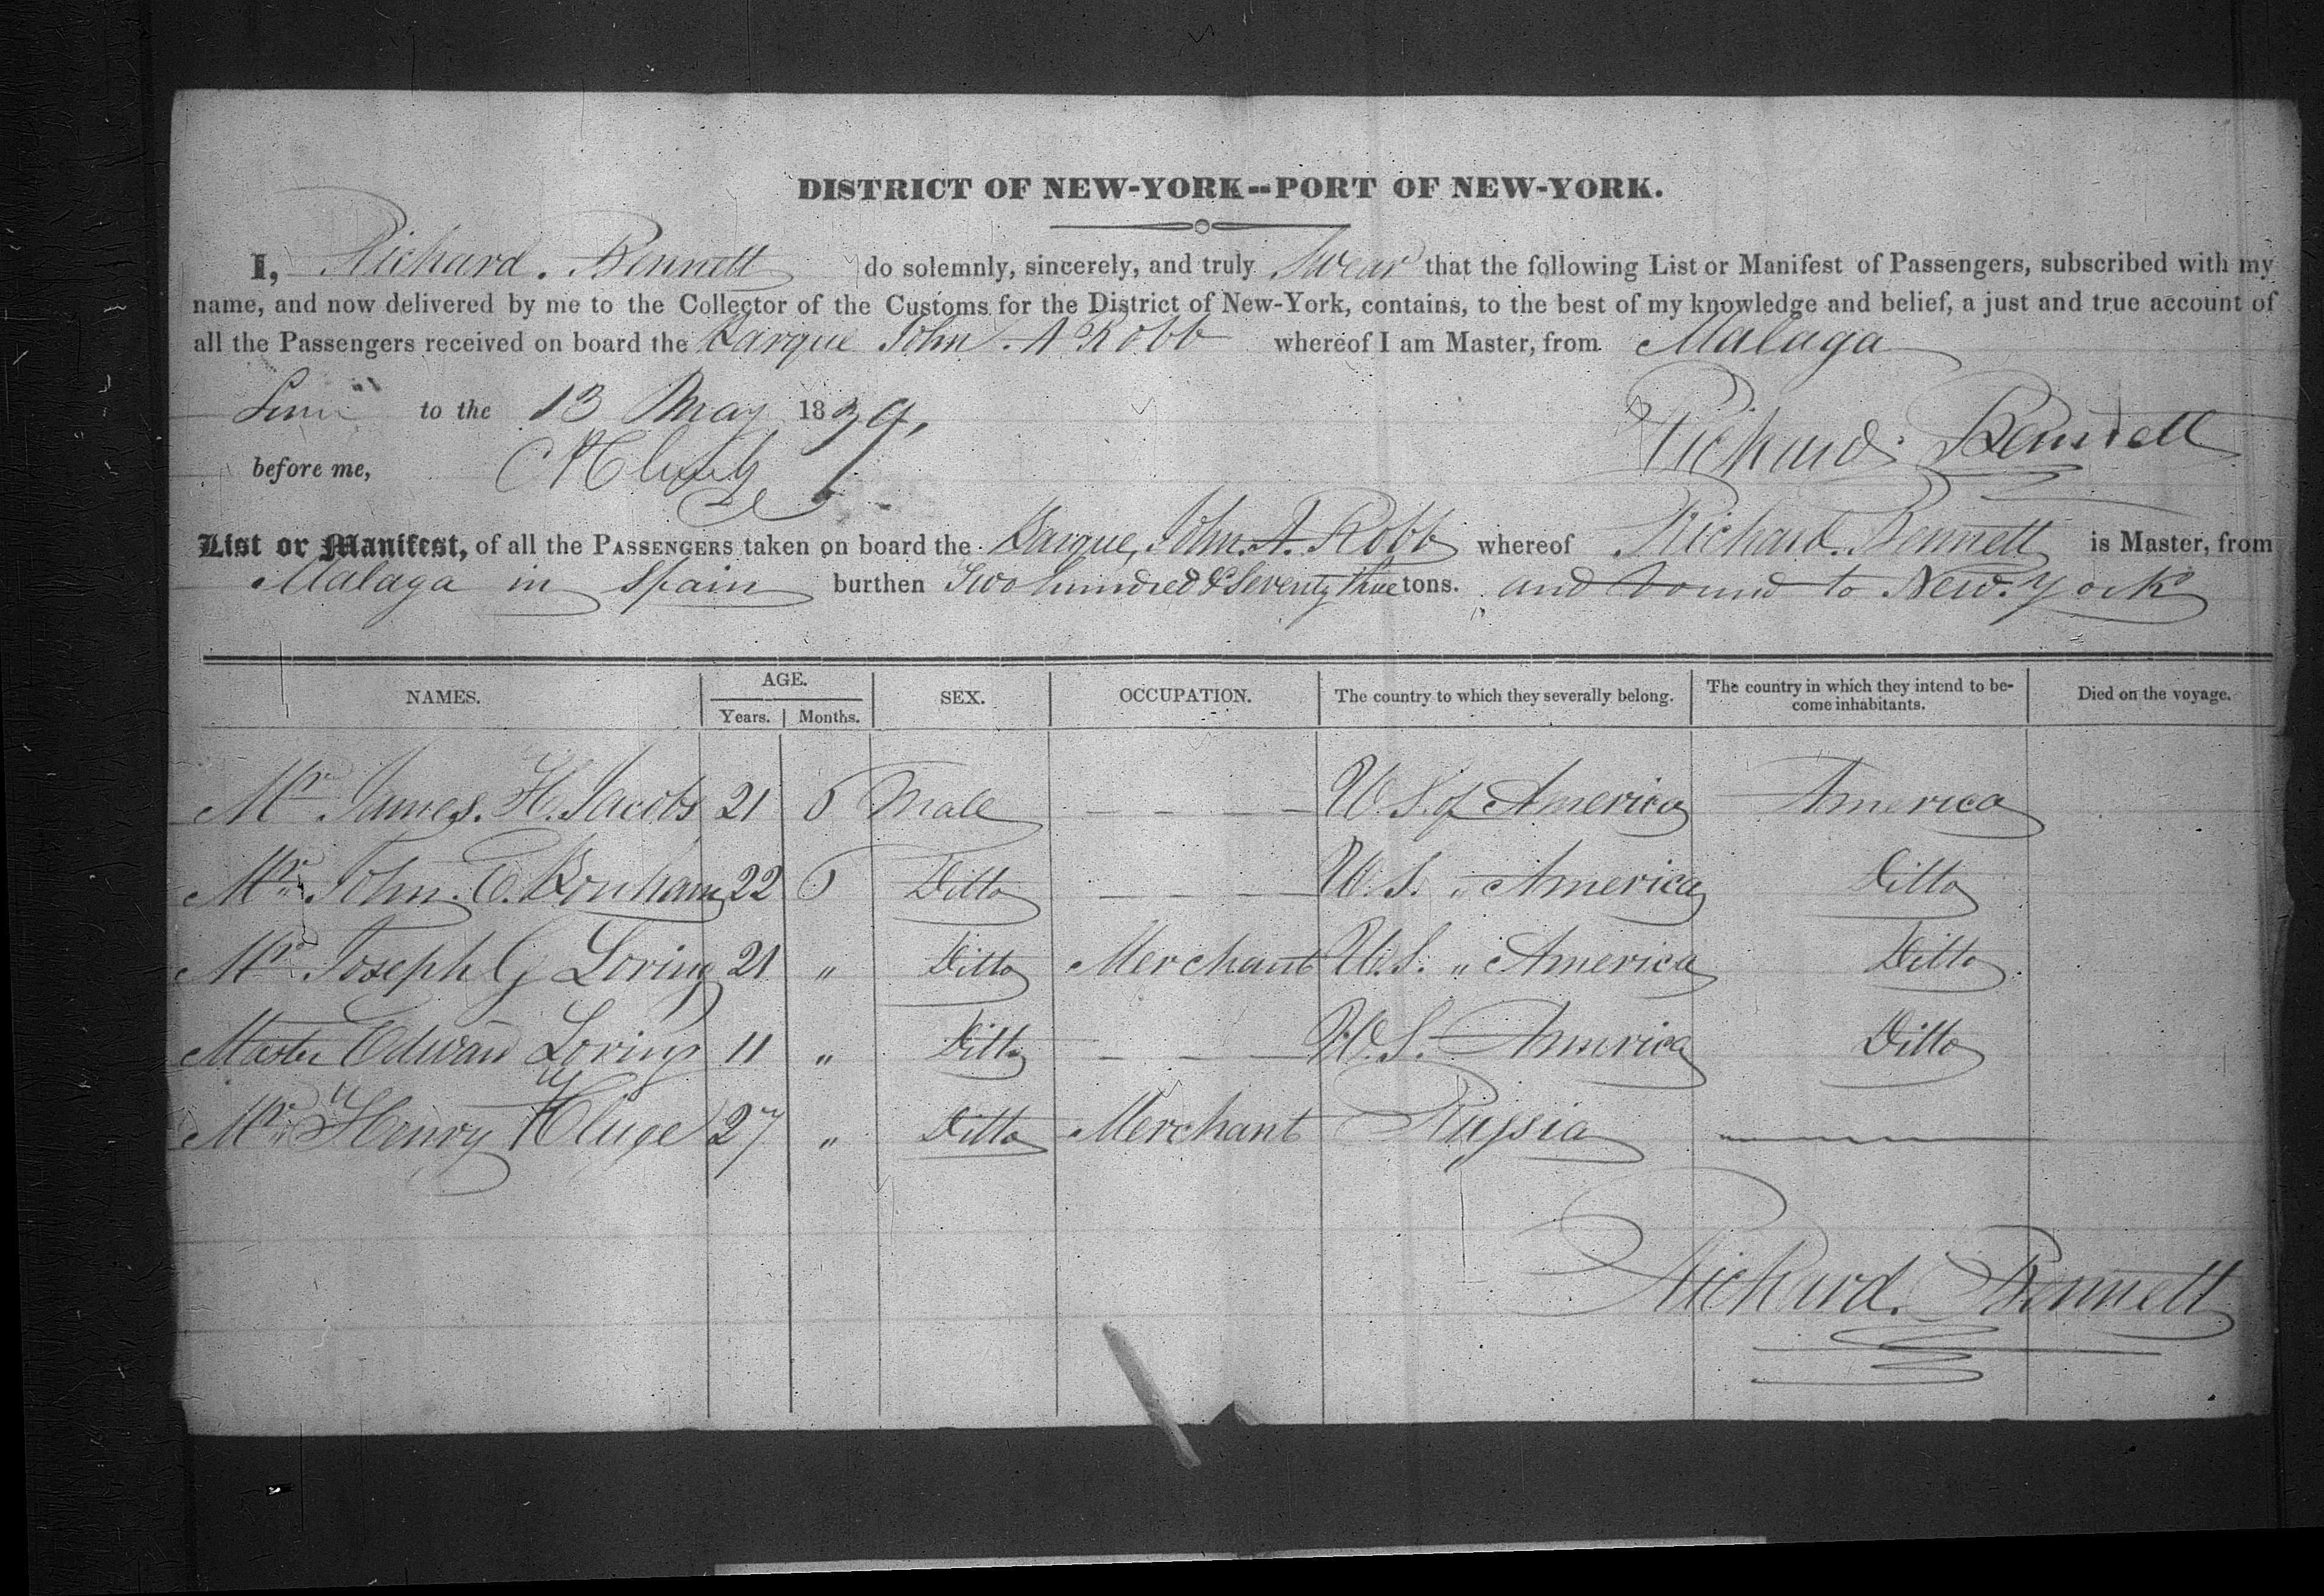 DISTRICT OF NEW-YORK--PORT OF NEW-YORK.
I, Richard. Bennett do solemnly, sincerely, and truly Swear that the following List or Manifest of Passengers, subscribed with my
name, and now delivered by me to the Collector of the Customs for the District of New-York, contains, to the best of my knowledge and belief, a just and true account of
all the Passengers received on board the Barque John. A Robb whereof I am Master, from Malaga
to the 13 May 1839,
Richard. Bennett
before me,
List or Manifest, of all the PASSENGERS taken on board the Barque, John. A. Robb whereof Richard. Bennett is Master, from
Malaga in Spain burthen Two hundred & Seventy three tons. and bound to New. York
NAMES. AGE. SEX. OCCUPATION. The country to which they severally belong. The country in which they intend to be-come inhabitants. Died on the voyage.
Years. Months.
Mr James. H. Jacobs 21 6 Male — — — — U. S. of America America
Mr John. C. Bonham 22 6 Ditto — — — — U. S. " America Ditto
Mr Joseph G Loring 21 " Ditto Merchant U. S. " America Ditto
Master Edward Loring 11 " Ditto — — — U. S. America Ditto
Mr Henry Kluge 27 " Ditto Merchant Russia —
Richard. Bennett